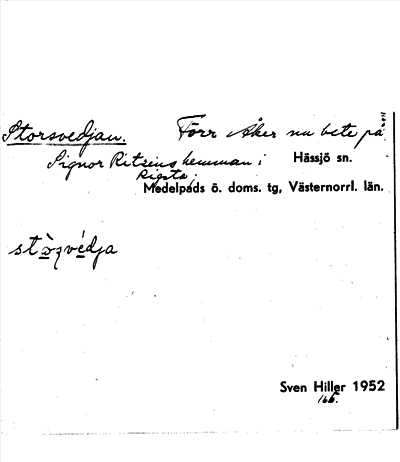 Storsvedjan. Förr åker nu bete på
Signor Ritzéns hemman i Hässjö sn.
Rigsta.
Medelpads ö. doms. tg, Västernorrl. län.
stòzvédja
Sven Hiller 1952